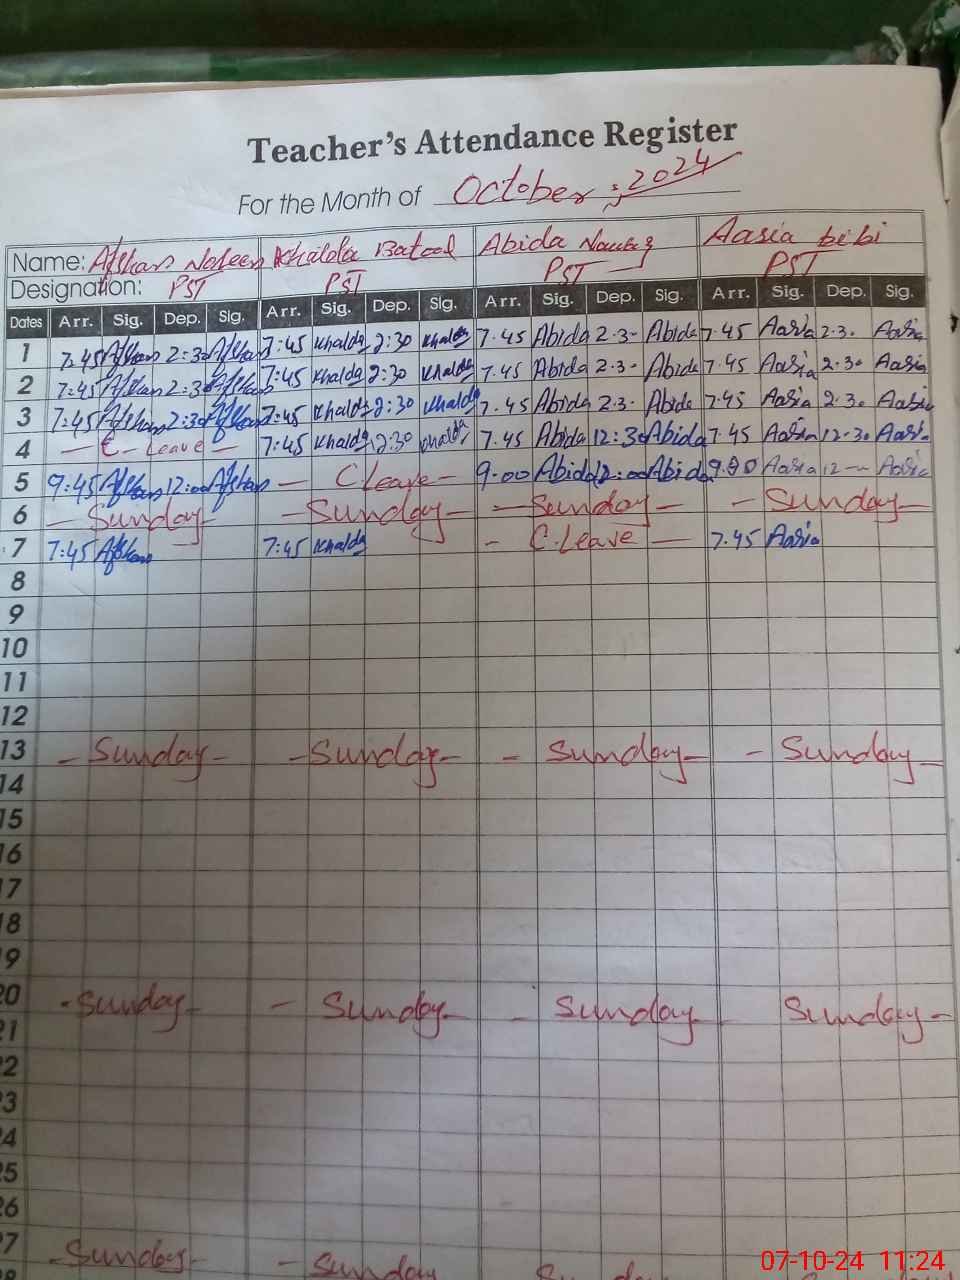 Teacher's Attendance Register
For the Month of October, 2024
Name: Afshan Nafeen Khalida Batool Abida Aasia bibi
Designation: PST PST PST PST
Dates Arr. Sig. Dep. Sig. Arr. Sig. Dep. Sig. Arr. Sig. Dep. Sig. Arr. Sig. Dep. Sig.
1 7:45 Afshan 2:30 Afshan 7:45 Khalda 2:30 Khalda 7.45 Abida 2.3- Abida 7.45 Aasia 2.3. Aasia
2 7:45 Afshan 2:30 Afshan 7:45 Khalda 2:30 Khalda 7.45 Abida 2.3- Abida 7.45 Aasia 2.30 Aasia
3 7:45 Afshan 2:30 Afshan 7:45 Khalda 2:30 Khalda 7.45 Abida 2.3- Abida 7.45 Aasia 2.30 Aasia
4 - C- Leave - 7:45 Khalda 2:30 Khalda 7.45 Abida 12:30 Abida 7.45 Aasia 12.30 Aasia
5 9:45 Afshan 12:00 Afshan - C Leave - 9.00 Abida 12:00 Abida Aasia 12 -- Aasia
6 - Sunday - - Sunday - - Sunday - - Sunday -
7 7:45 Afshan 7:45 Khalda - C.Leave - 7.45 Aasia
8
9
10
11
12
13 - Sunday - - Sunday - - Sunday - - Sunday -
14
15
16
17
18
19
20 - Sunday - - Sunday - - Sunday - Sunday -
21
22
23
24
25
26
27 - Sunday - - Sunday - Sunday
07-10-24 11:24